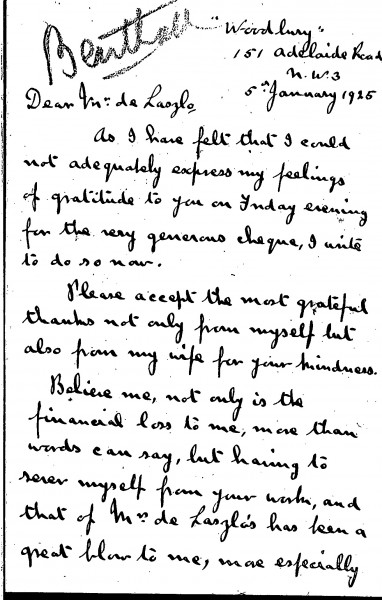 Benthall
"Woodbury"
151 Adelaide Road
N.W.3
5th January 1925
Dear Mr. de Laszlo,
As I have felt that I could
not adequately express my feelings
of gratitude to you on Friday evening
for the very generous cheque, I write
to do so now.
Please accept the most grateful
thanks not only from myself but
also from my wife for your kindness.
Believe me, not only is the
financial loss to me, more than
words can say, but having to
sever myself from your work, and
that of Mrs de Laszlo's has been a
great blow to me, more especially